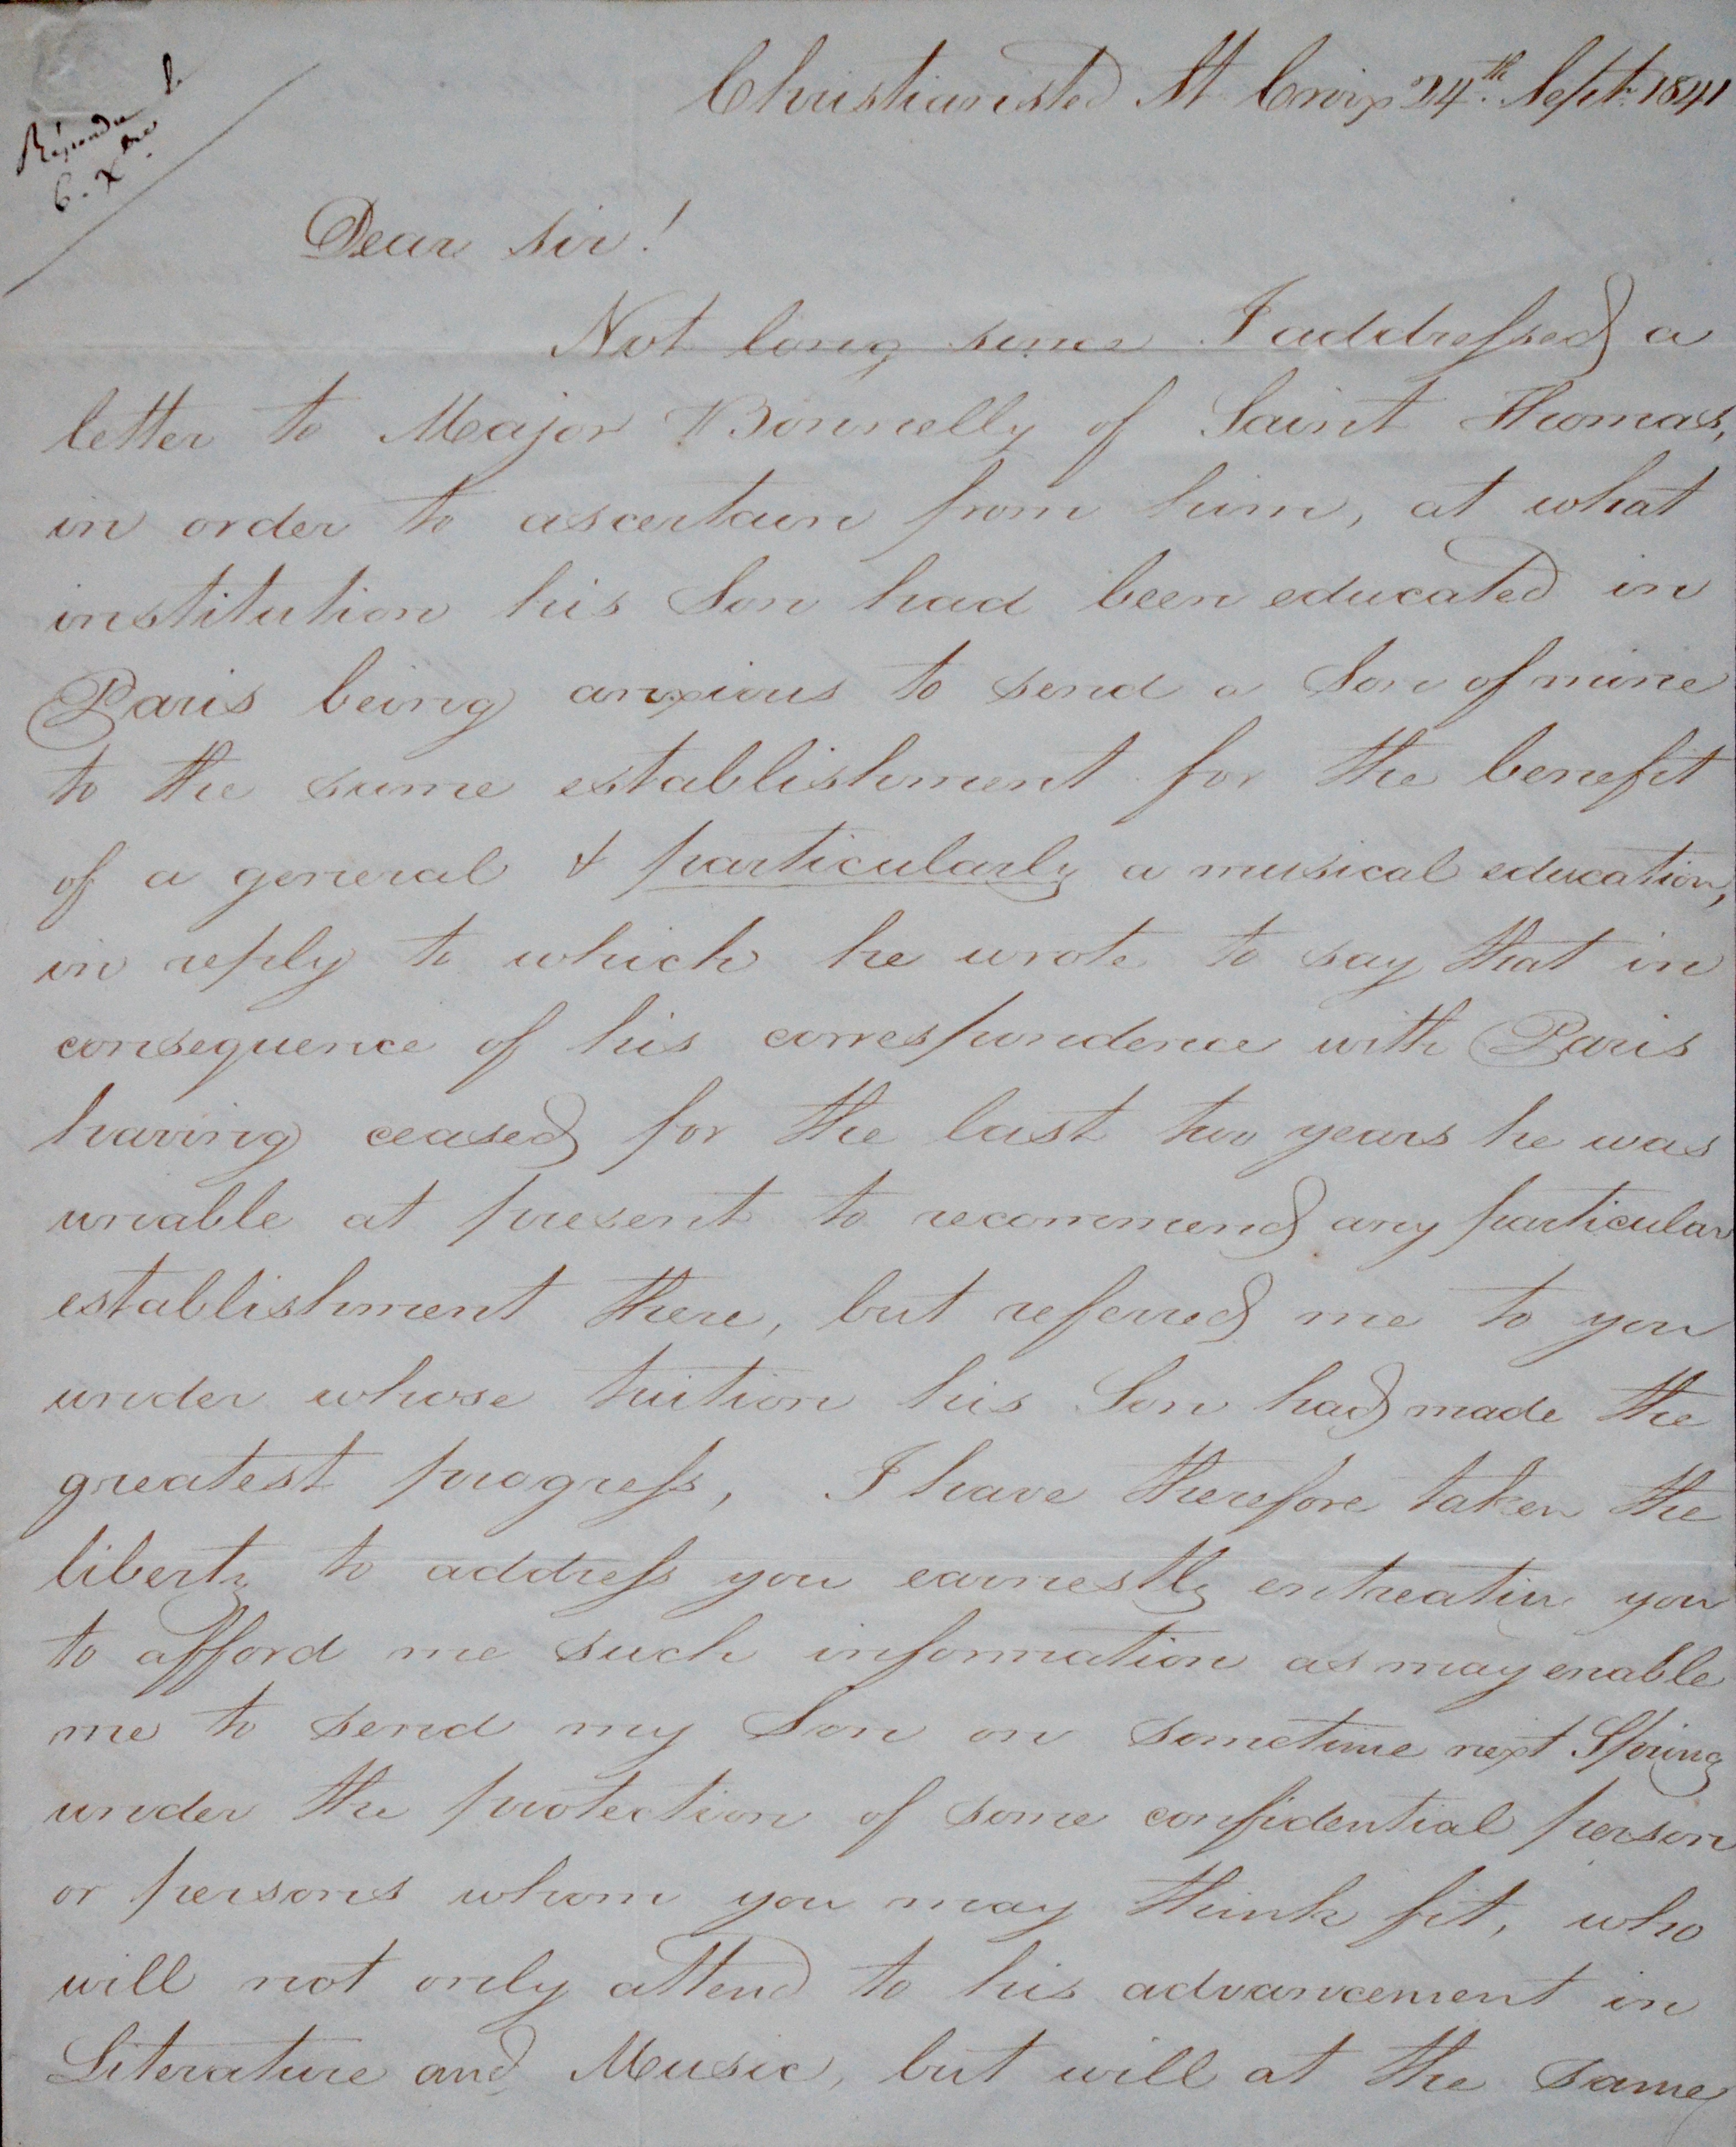 Répondu le
6. Xbre
Christiansted St Croix 24th Septr 1841
Dear sir!
Not long since I addressed a
letter to Major Bonnelly of Saint Thomas,
in order to ascertain from him, at what
institution his Son had been educated in
Paris being anxious to send a Son of mine
to the same establishment for the benefit
of a general & particularly a musical education,
in reply to which he wrote to say that in
consequence of his correspondence with Paris
having ceased for the last two years he was
unable at present to recommend any particular
establishment there, but referred me to you
under whose tuition his Son had made the
greatest progress, I have therefore taken the
liberty to address you earnestly entreatin you
to afford me such information as may enable
me to send my Son on sometime next Spring
under the protection of some confidential person
or persons whom you may think fit, who
will not only attend to his advancement in
Literature and Music, but will at the same